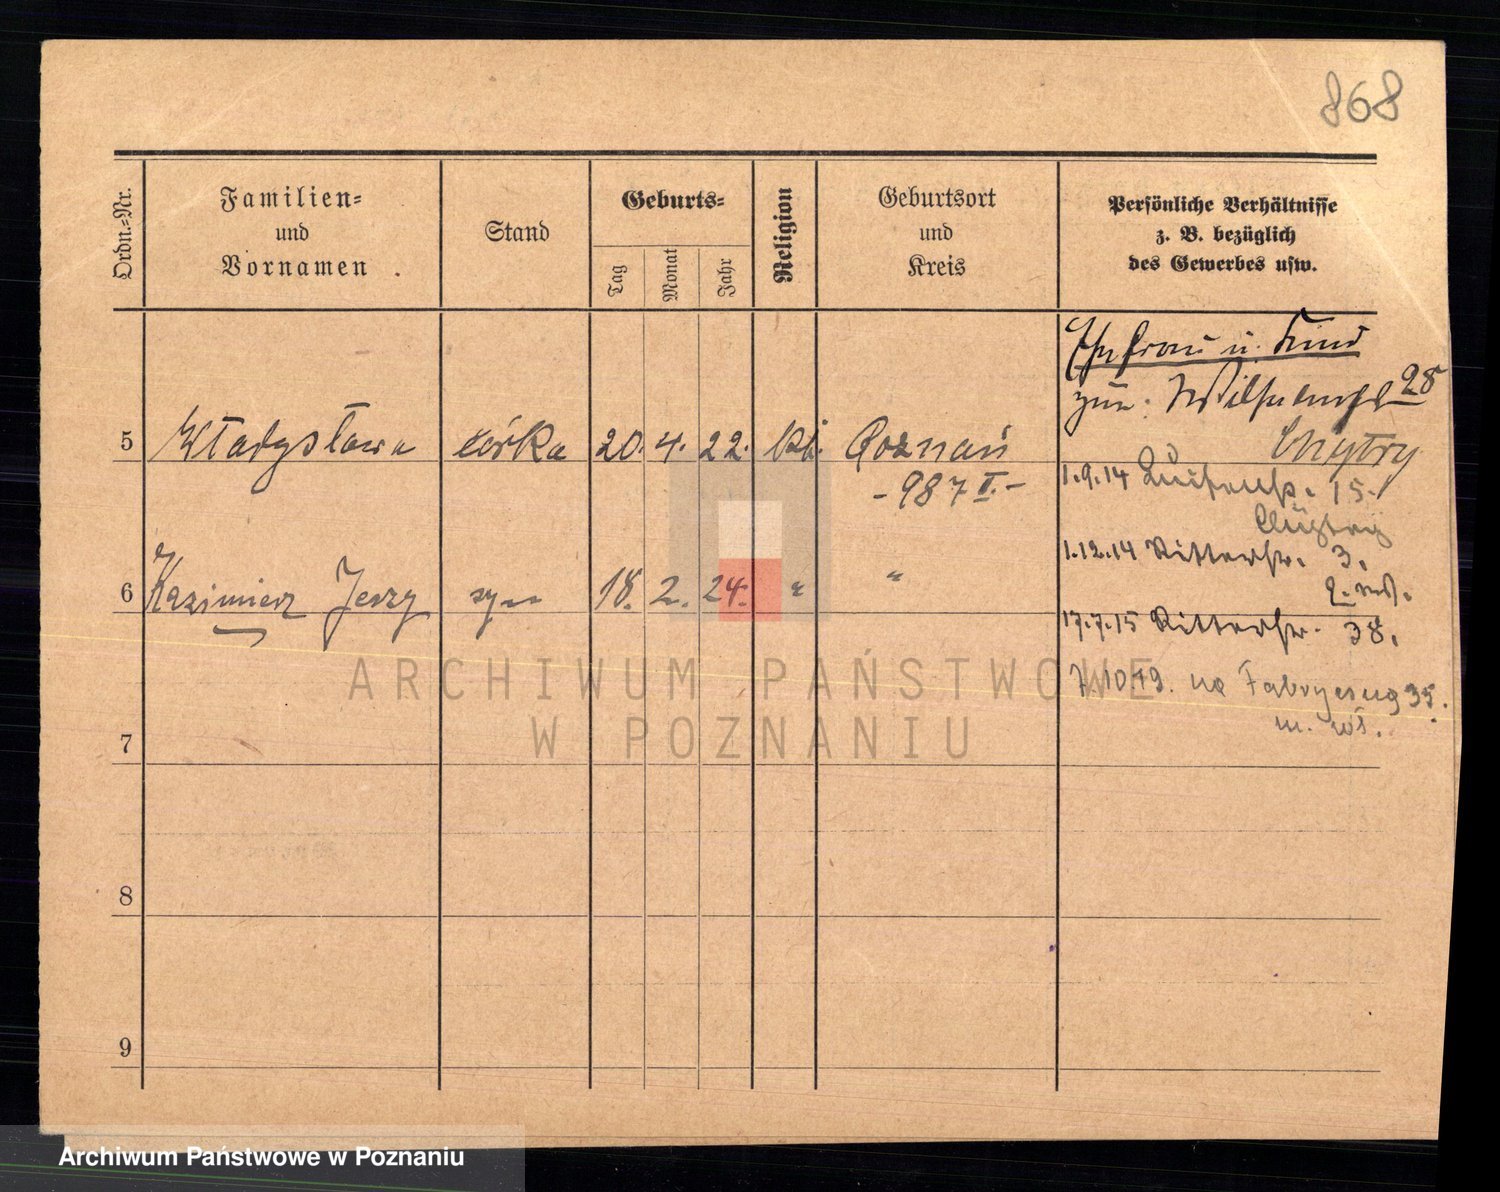 868
Ordn.=Nr.
Familien=
und
Vornamen
Stand
Geburts=
Tag
Monat
Jahr
Religion
Geburtsort
und
Kreis
Persönliche Verhältnisse
z. B. bezüglich
des Gewerbes usw.
Ehefrau u. Kind
28
5 Władysława córka 20. 4. 22. kt. Poznań
- 987 II. -
Chytry
1.9.14 15.
Chytry
1.12.14 Ritterstr. 3.
6 Kazimierz Jerzy syn 18. 2. 24. " "
17.7.15 Ritterstr. 38.
7.10.19. na 35.
m. wł.
7
8
9
ARCHIWUM PAŃSTWOWE
W POZNANIU
Archiwum Państwowe w Poznaniu